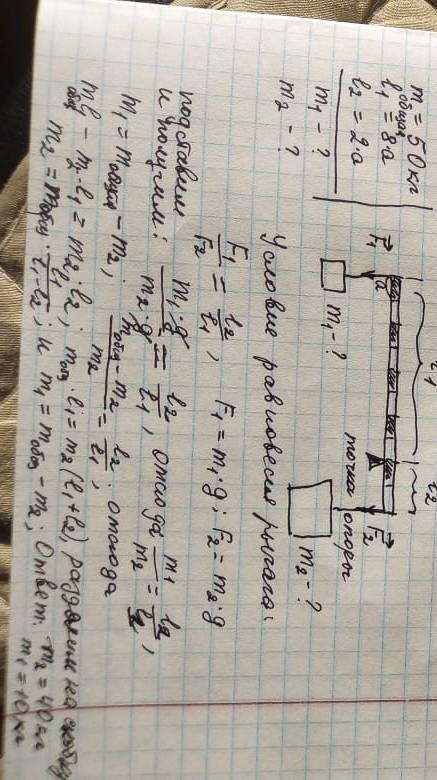 m = 50 кг
общая
l₁ = 8·a
l₂ = 2·a
m₁ - ?
m₂ - ?
l₁ l₂
F₁ a F₂
m₁ - ? точка опоры m₂ - ?
Условие равновесия рычага:
F₁/F₂ = l₂/l₁, F₁ = m₁·g; F₂ = m₂·g
подставим
и получим: m₁·g/m₂·g = l₂/l₁, отсюда m₁/m₂ = l₂/l₂,
m₁ = mобщая - m₂; mобщ - m₂/m₂ = l₂/l₁; отсюда
mобщ l₁ - m₂·l₁ = m₂·l₂; mобщ·l₁ = m₂(l₁+l₂) разделим на скобку
m₂ = mобщ·l₁/l₁-l₂; и m₁ = mобщ - m₂; Ответ: m₂ = 40 кг
m₁ = 10 кг